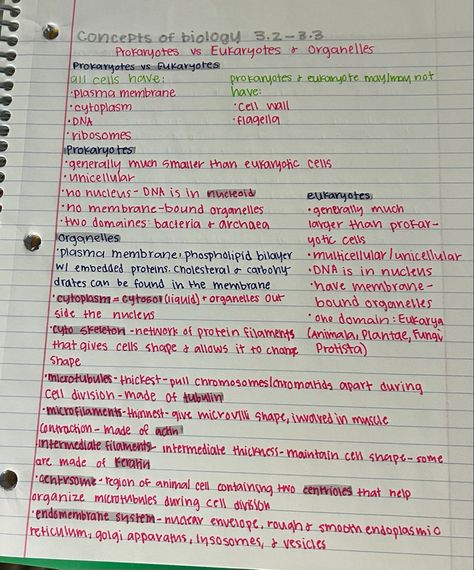 Concepts of biology 3.2-3.3
Prokaryotes vs Eukaryotes & Organelles
Prokaryotes vs Eukaryotes
all cells have:
·plasma membrane
·cytoplasm
·DNA
·ribosomes
prokaryotes & eukaryote may/may not
have:
·cell wall
·flagella
Prokaryotes
·generally much smaller than eukaryotic cells
·unicellular
·no nucleus- DNA is in nucleoid
·no membrane-bound organelles
·two domaines: bacteria & archaea
eukaryotes
·generally much
larger than prokar-
yotic cells
·multicellular/unicellular
·DNA is in nucleus
·have membrane-
bound organelles
·one domain: Eukarya
(Animalia, Plantae, Fungi,
Protista)
Organelles
·plasma membrane: phospholipid bilayer
w/ embedded proteins. Cholesteral & carbohy-
drates can be found in the membrane
·cytoplasm = cytosol (liquid) + organelles out
side the nucleus
·cyto skeleton - network of protein filaments
that gives cells shape & allows it to change
shape
·microtubules - thickest - pull chromosomes/chromatids apart during
cell division - made of tubulin
·microfilaments - thinnest - give microvilli shape, involved in muscle
contraction - made of actin
intermediate filaments - intermediate thickness - maintain cell shape - some
are made of keratin
·centrsome - region of animal cell containing two centrioles that help
organize microtubules during cell division
·endomembrane system - nuclear envelope, rough & smooth endoplasmic
reticulum, golgi apparatus, lysosomes, & vesicles